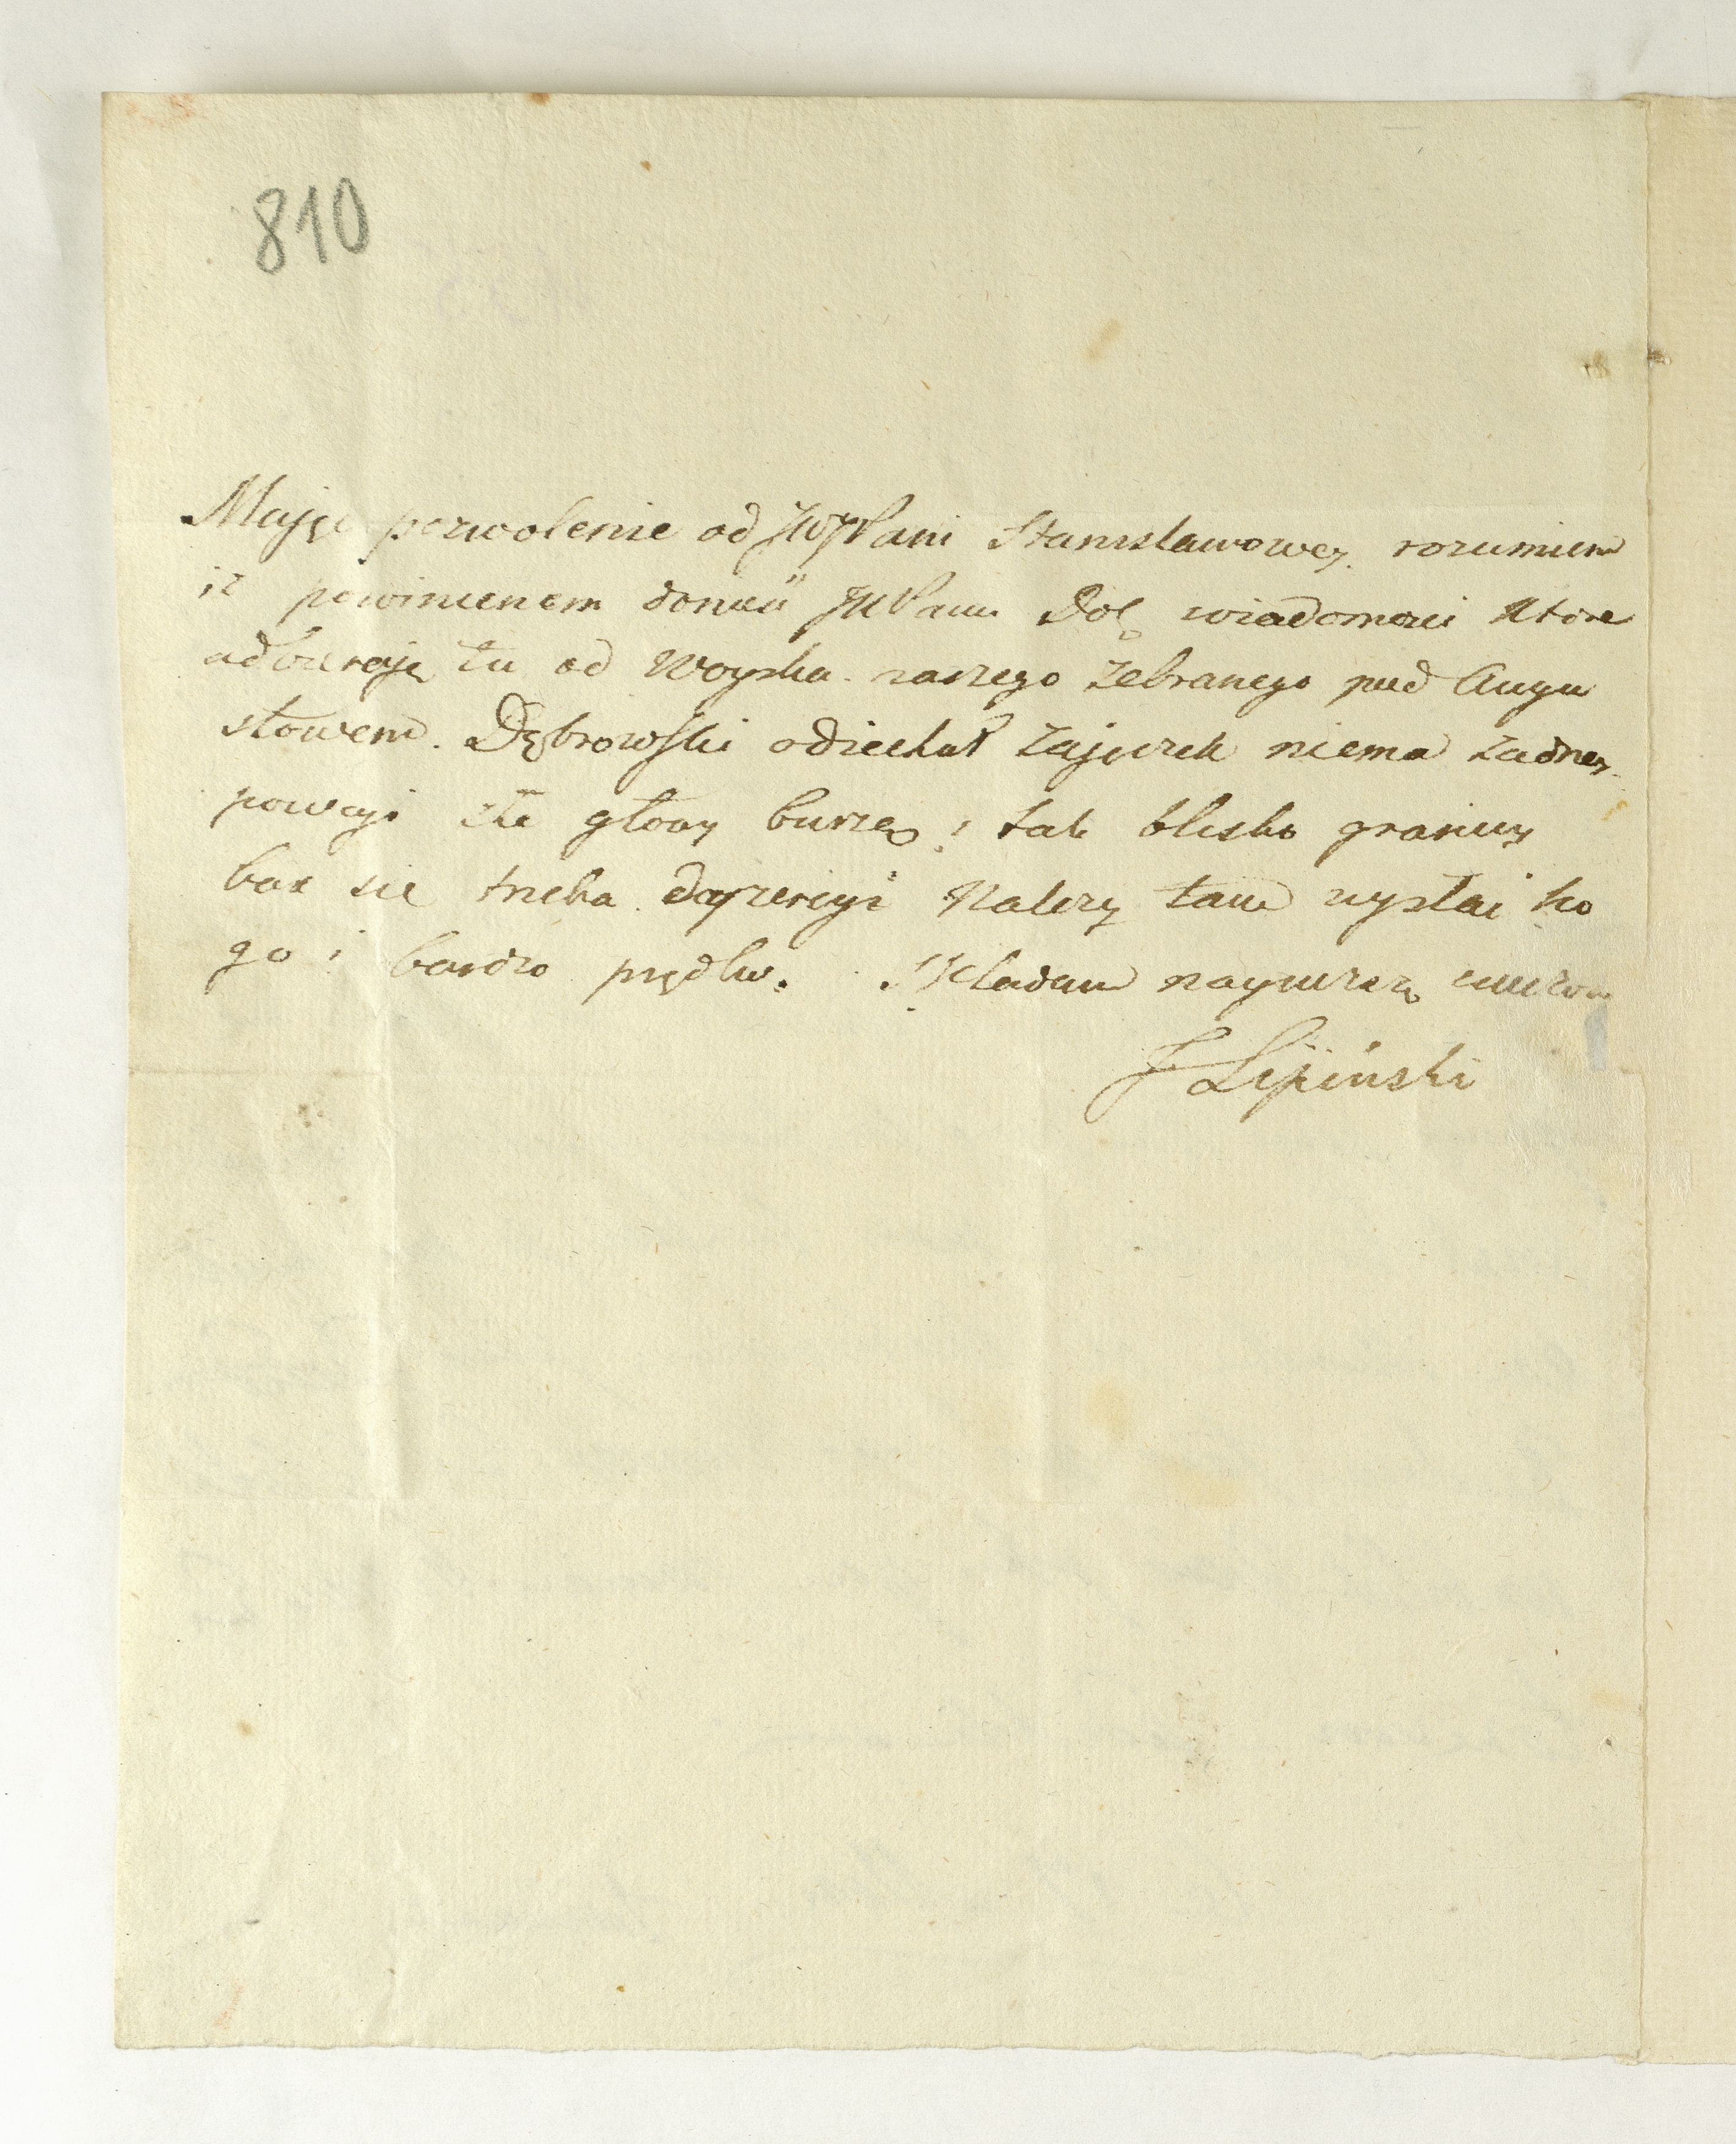 810
Mając pozwolenie od JWPani Stanisławowey rozumiem
iż powinienem donieść JWPanu Dob wiadomości które
odbieraję tu od Woyska naszego zebranego pod Augu
stowem. Dąbrowski odiechał Zajączek niema żadney
powagi złe głowy burzą i tak blisko granicy
bać się trzeba dezercyi Należy tam wysłać ko
go i bardzo prędko. Składam naywyższe
J Lipiński